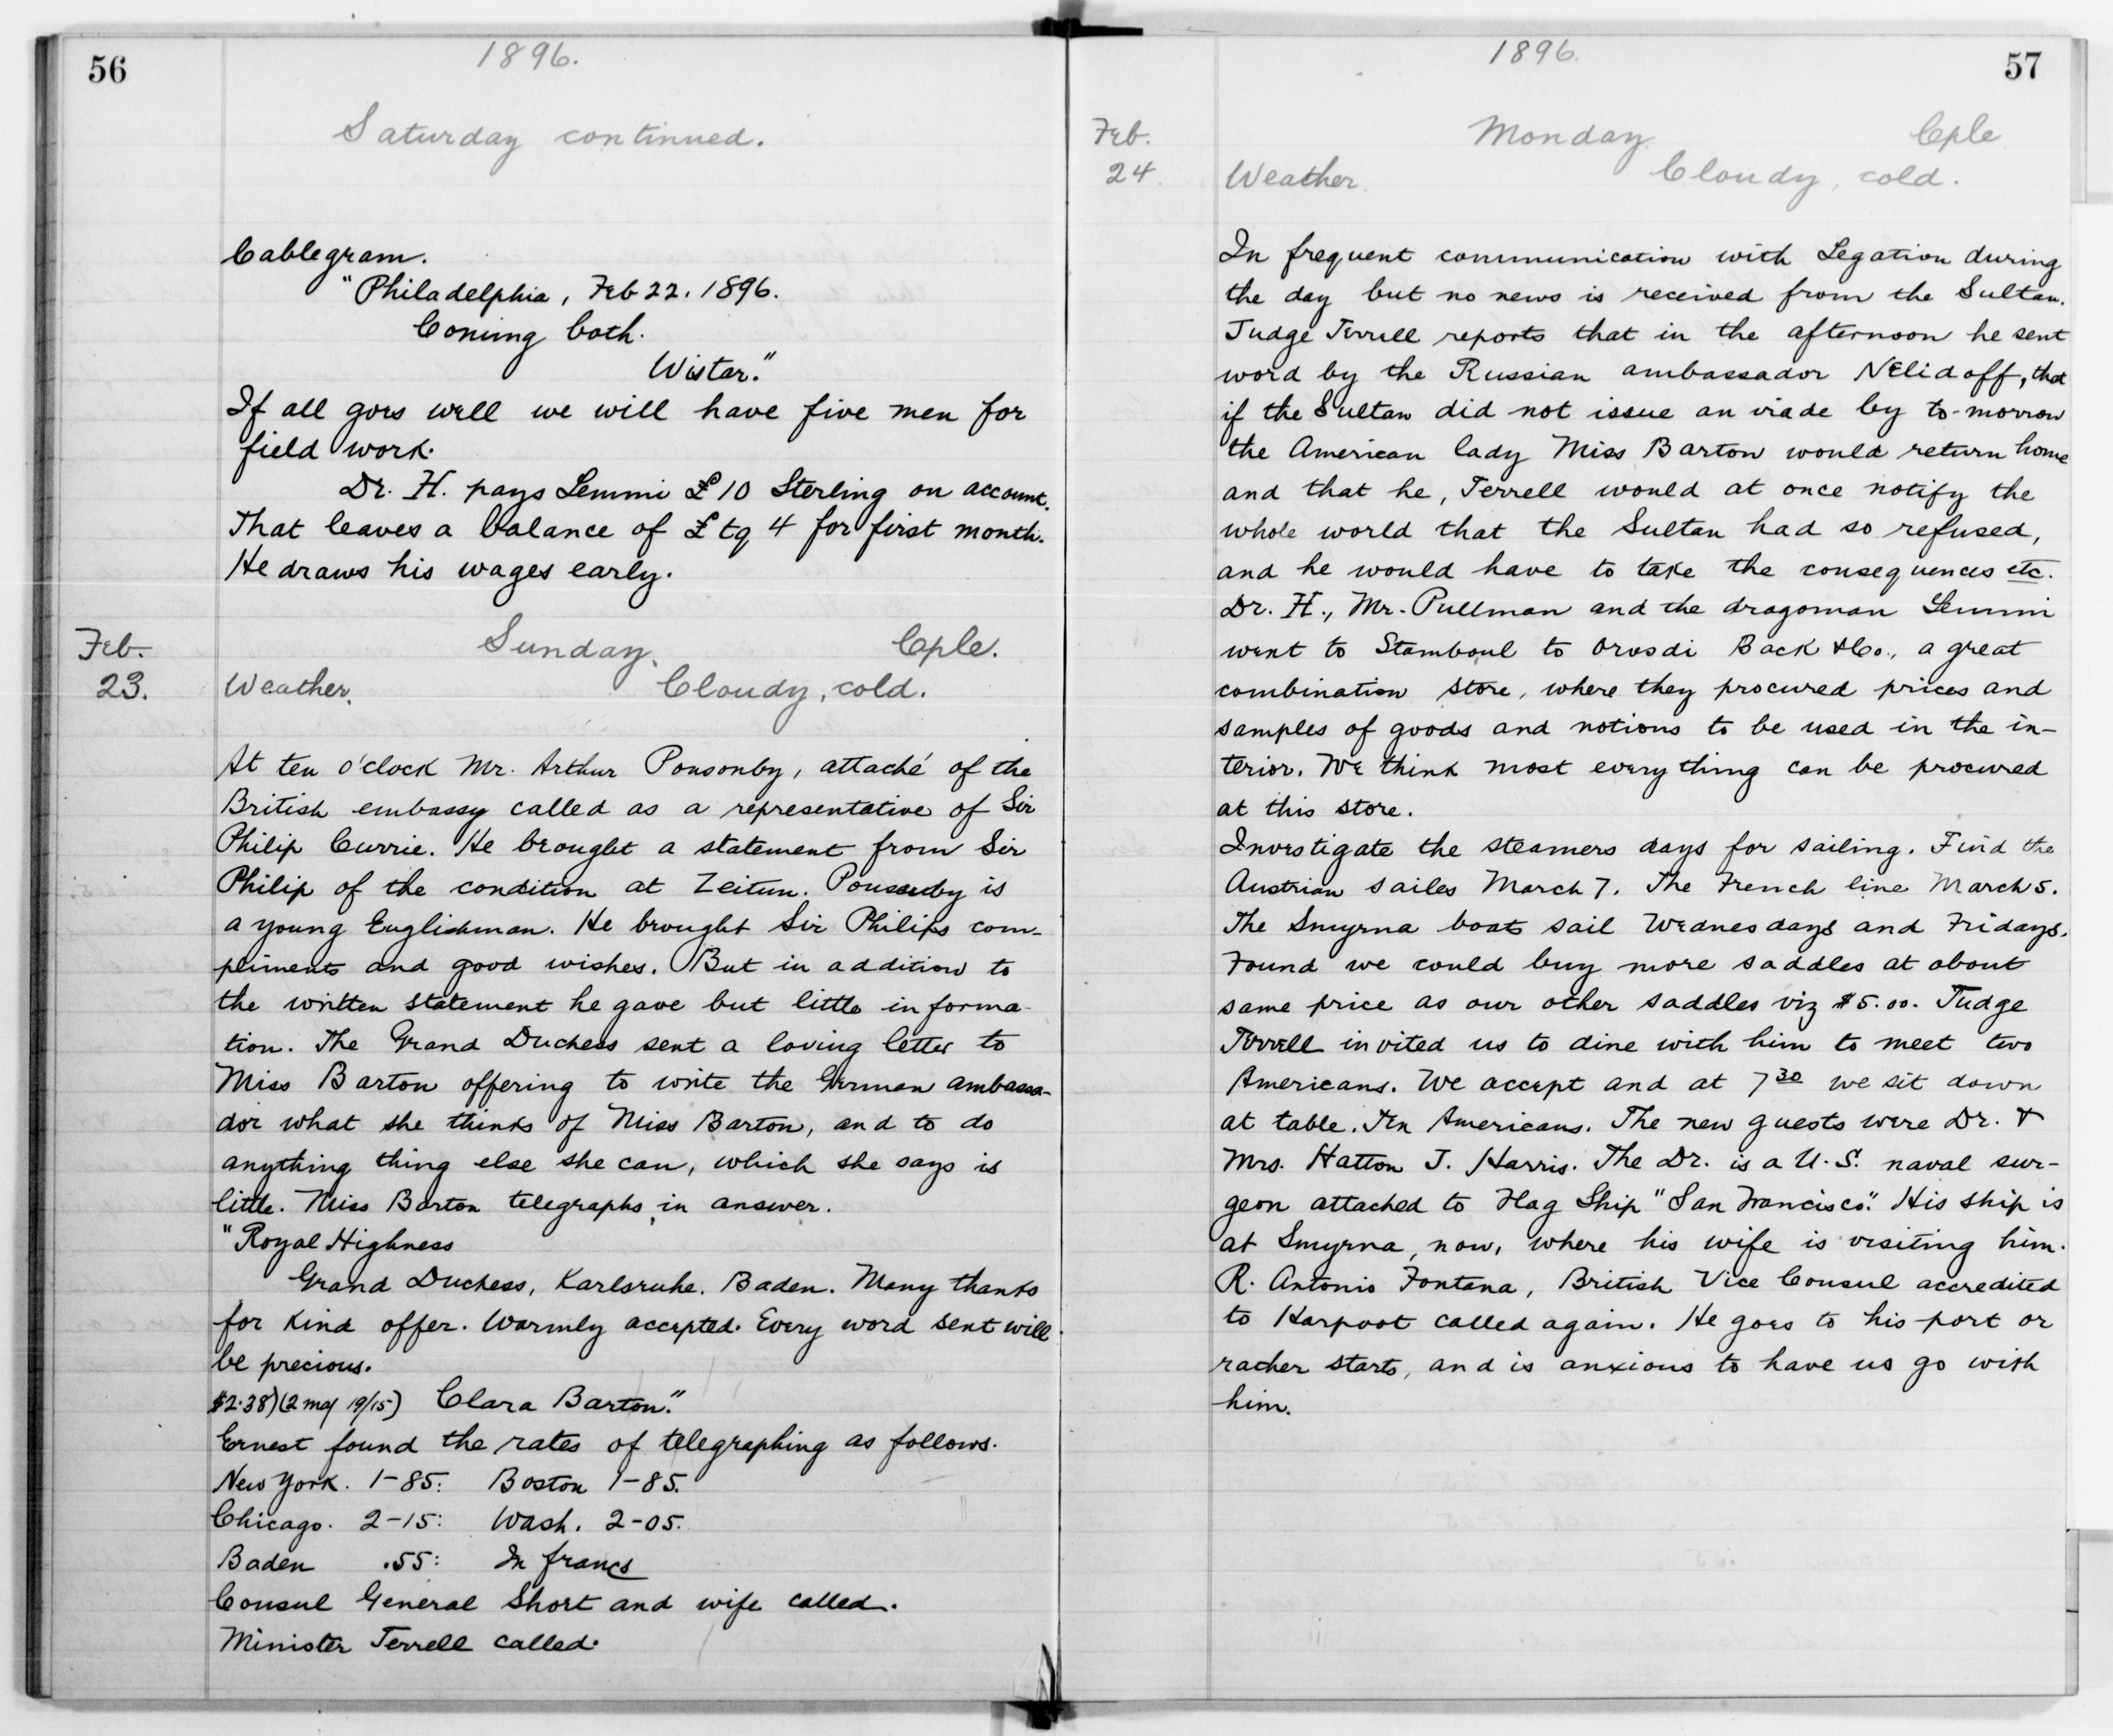 56
1896.
Saturday continued.
Cablegram.
"Philadelphia, Feb 22. 1896.
Coming both.
Wistar."
If all goes well we will have five men for
field work.
Dr. H. pays Lemmi £10 Sterling on account.
That leaves a balance of £tq 4 for first month.
He draws his wages early.
Feb. Sunday. Cple.
23. Weather. Cloudy, cold.
At ten o'clock Mr. Arthur Ponsonby, attaché of the
British embassy called as a representative of Sir
Philip Currie. He brought a statement from Sir
Philip of the condition at Zeitun. Ponsonby is
a young Englishman. He brought Sir Philips com-
pliments and good wishes. But in addition to
the written statement he gave but little informa-
tion. The Grand Duchess sent a loving letter to
Miss Barton offering to write the German ambassa-
dor what she thinks of Miss Barton, and to do
anything thing else she can, which she says is
little. Miss Barton telegraphs in answer.
"Royal Highness
Grand Duchess, Karlsruhe. Baden. Many thanks
for kind offer. Warmly accepted. Every word sent will
be precious.
$2.38) (2 maj 19/15) Clara Barton."
Ernest found the rates of telegraphing as follows.
New York. 1-85: Boston 1-85.
Chicago. 2-15: Wash. 2-05.
Baden .55: In francs
Consul General Short and wife called.
Minister Terrell called.
57
1896.
Feb. Monday. Cple
24. Weather. Cloudy, cold.
In frequent communication with Legation during
the day but no news is received from the Sultan.
Judge Terrell reports that in the afternoon he sent
word by the Russian ambassador Nelidoff, that
if the Sultan did not issue an irade by to-morrow
the American lady Miss Barton would return home
and that he, Terrell would at once notify the
whole world that the Sultan had so refused,
and he would have to take the consequences etc.
Dr. H., Mr. Pullman and the dragoman Lemmi
went to Stamboul to Orosdi Back & Co., a great
combination store, where they procured prices and
samples of goods and notions to be used in the in-
terior. We think most everything can be procured
at this store.
Investigate the steamers days for sailing. Find the
Austrian sailes March 7. The French line March 5.
The Smyrna boats sail Wednesdays and Fridays.
Found we could buy more saddles at about
same price as our other saddles viz $5.00. Judge
Terrell invited us to dine with him to meet two
Americans. We accept and at 7 30 we sit down
at table. Ten Americans. The new guests were Dr. &
Mrs. Hatton J. Harris. The Dr. is a U.S. naval sur-
geon attached to Flag Ship "San Francisco". His ship is
at Smyrna, now, where his wife is visiting him.
R. Antonio Fontana, British Vice Consul accredited
to Harpoot called again. He goes to his port or
racher starts, and is anxious to have us go with
him.